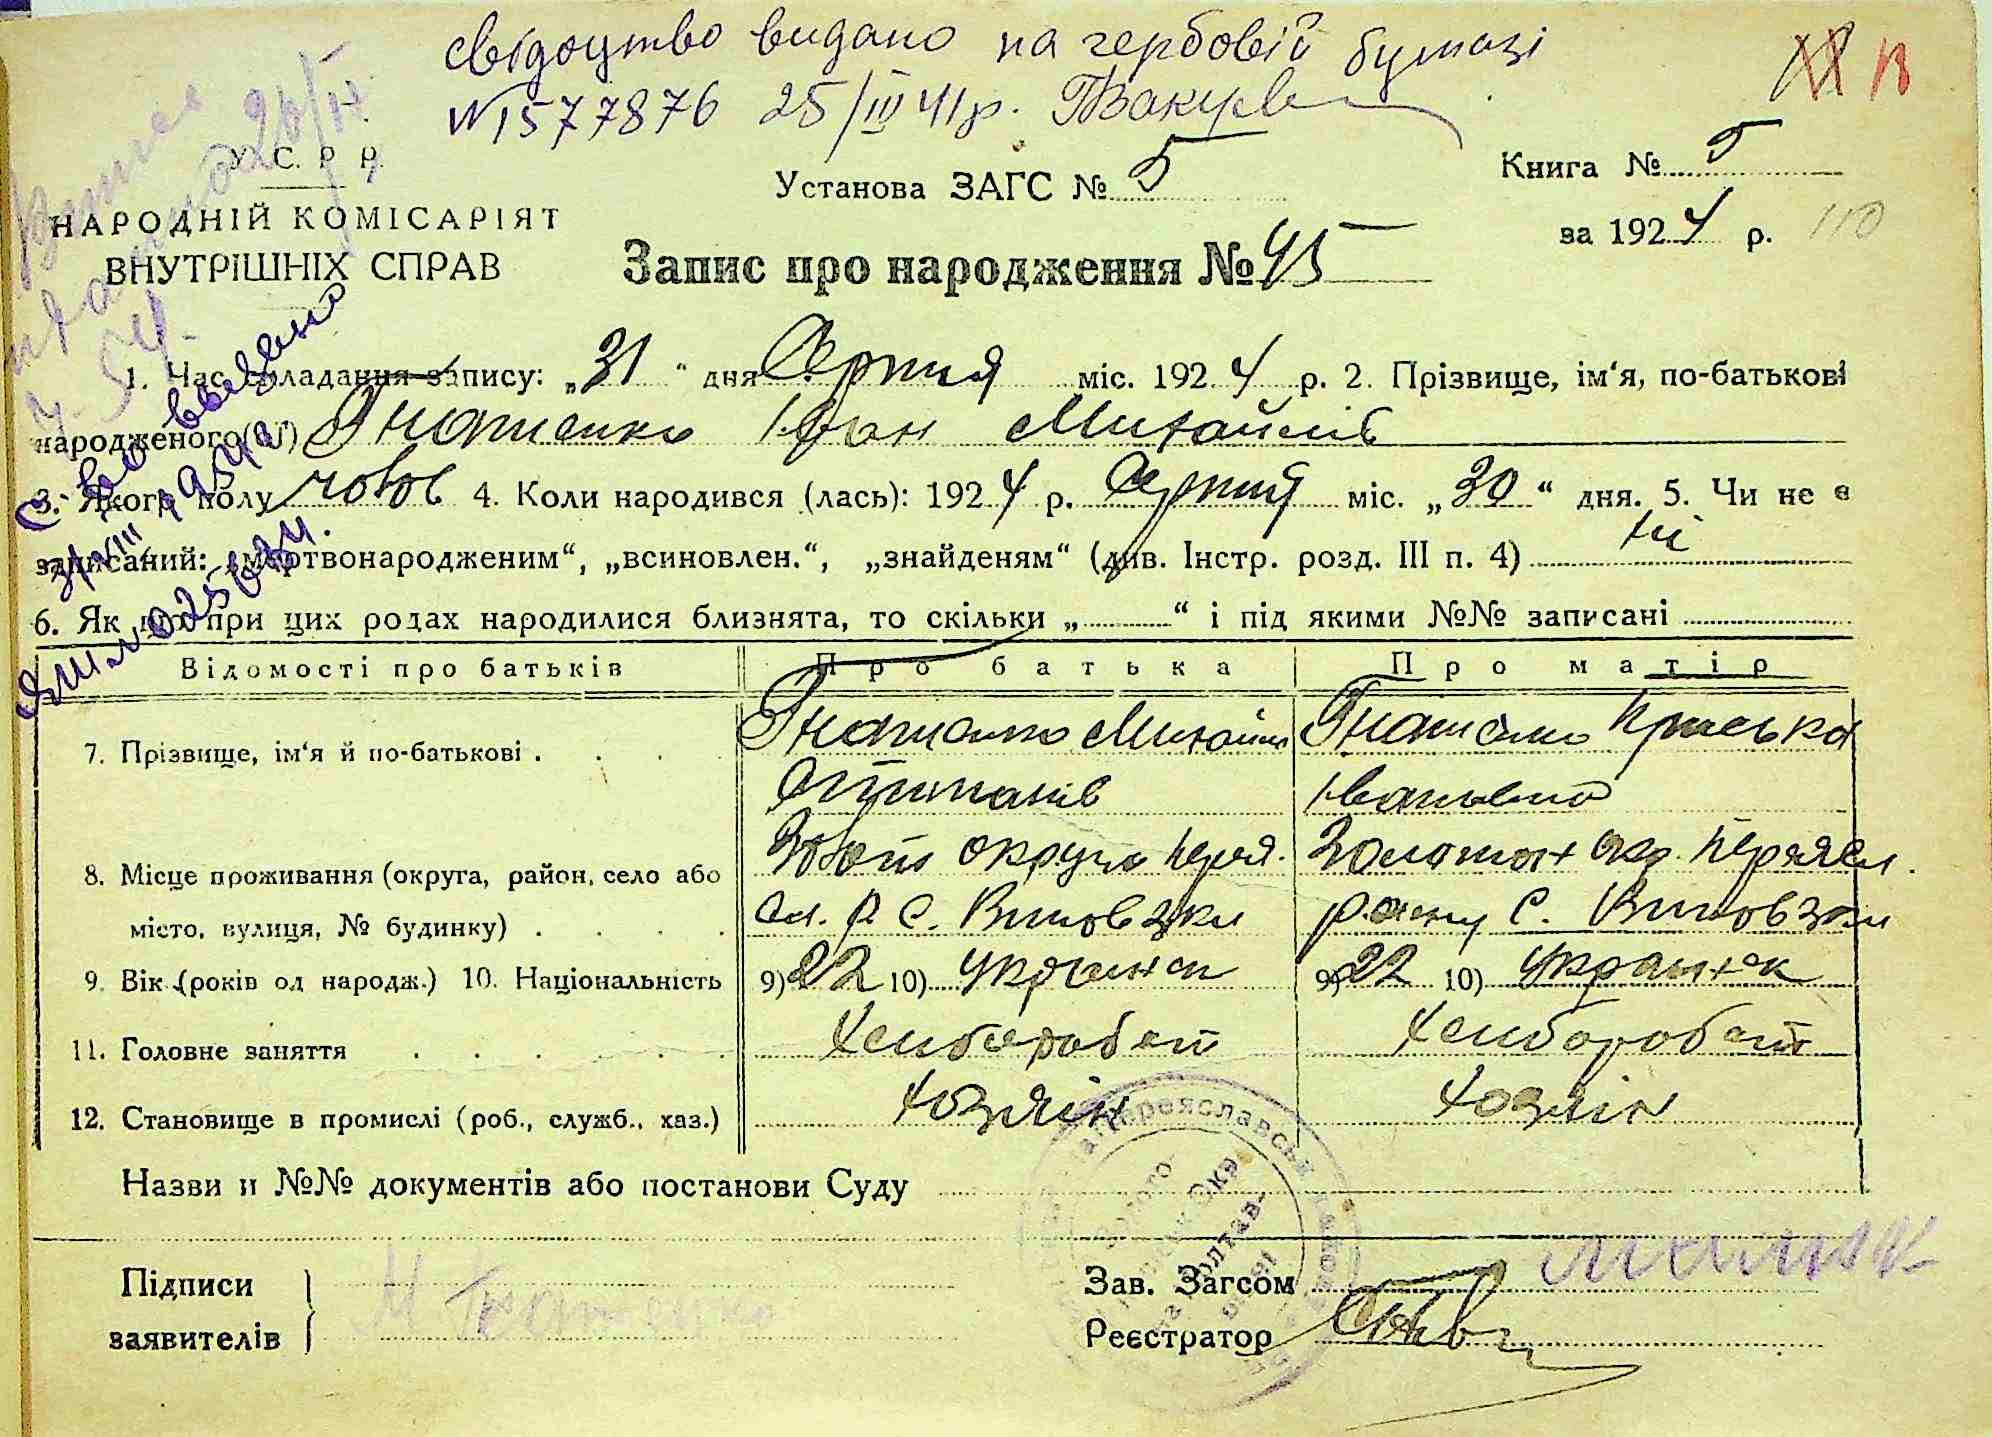 свідоцтво видано на гербовій бумазі
N1577876 25/IV 41р.
У. С. Р. Р.
НАРОДНІЙ КОМІСАРІЯТ
ВНУТРІШНІХ СПРАВ
Установа ЗАГС № 5
Книга № 5
за 1924 р. 110
Запис про народження № 45
1. Час складання запису: „31" дня Серпня міс. 1924 р. 2. Прізвище, ім'я, по-батькові
народженого(ої) Гнатенко Іван Михайлів
3. Якого полу чолов 4. Коли народився (лась): 1924 р. Серпня міс. „30" дня. 5. Чи не є
записаний: „мертвонародженим", „всиновлен.", „знайденям" (див. Інстр. розд. III п. 4) ні
6. Як що при цих родах народилися близнята, то скільки „ " і під якими №№ записані
Відомості про батьків Про батька Про матір
7. Прізвище, ім'я й по-батькові . Гнатенко Михайло Гнатенко Пріська
Степанів Івановна
8. Місце проживання (округа, район, село або Золот округа Перея. Золотон окр. Переясл.
місто, вулиця, № будинку) . сл. Р. С. Виповзки району С. Виповзки
9. Вік (років од народж.) 10. Національність 9) 22 10) Україн 9) 22 10) Українк
11. Головне заняття Хлібороб Хлібороб
12. Становище в промислі (роб., служб., хаз.) Хозяін Хозяін
Назви и №№ документів або постанови Суду
Підписи М Гнатенко
заявителів
Зав. Загсом
Реєстратор